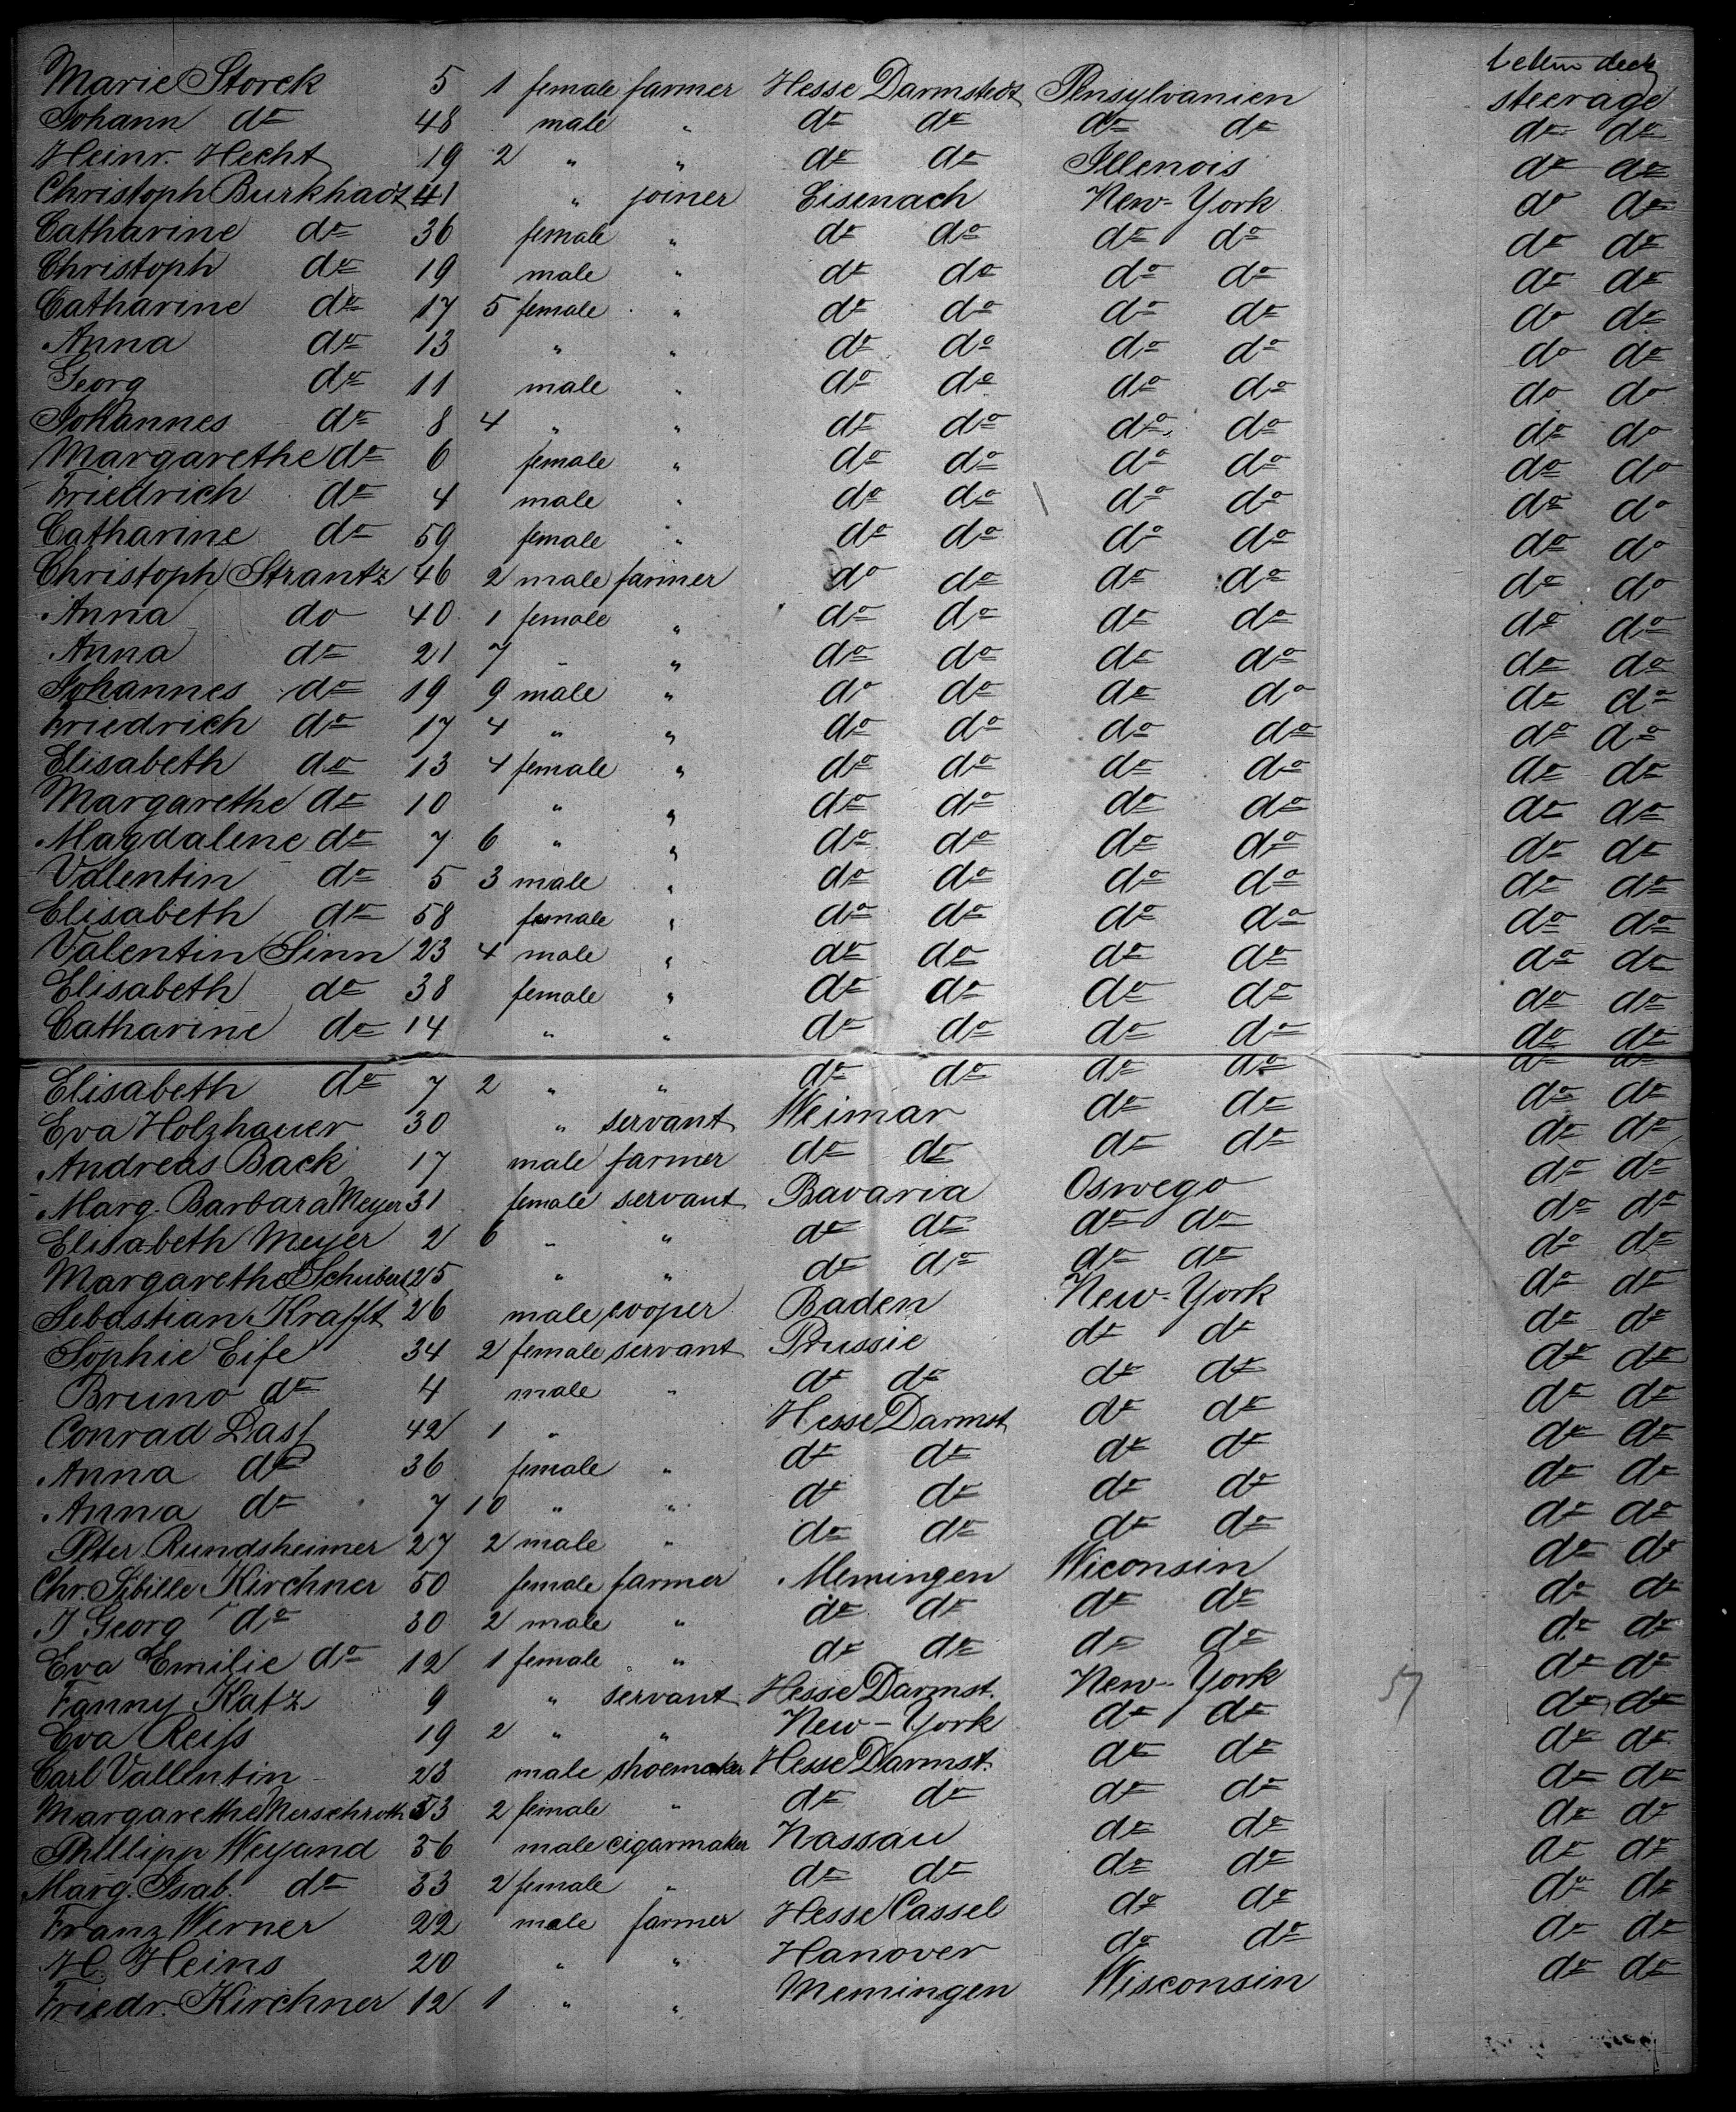 betwn deck
Marie Storck 5 1 female farmer Hesse Darmstedt Pensylvanien steerage
Johann do 48 male " do do do do do do
Heinr. Hecht 19 2 " " do do Illenois do do
Christoph Burkhadt 41 " joiner Eisenach New-York do do
Catharine do 36 female " do do do do do do
Christoph do 19 male " do do do do do do
Catharine do 17 5 female " do do do do do do
Anna do 13 " " do do do do do do
Georg do 11 male " do do do do do do
Johannes do 8 4 " " do do do do do do
Margarethe do 6 female " do do do do do do
Friedrich do 4 male " do do do do do do
Catharine do 59 female " do do do do do do
Christoph Strantz 46 2 male farmer do do do do do do
Anna do 40 1 female " do do do do do do
Anna do 21 7 " " do do do do do do
Johannes do 19 9 male " do do do do do do
Friedrich do 17 4 " " do do do do do do
Elisabeth do 13 4 female " do do do do do do
Margarethe do 10 " " do do do do do do
Magdalene do 7 6 " " do do do do do do
Valentin do 5 3 male " do do do do do do
Elisabeth do 58 female " do do do do do do
Valentin Sinn 23 4 male " do do do do do do
Elisabeth do 38 female " do do do do do do
Catharine do 14 " " do do do do do do
Elisabeth do 7 2 " " do do do do do do
Eva Holzhauer 30 " servant Weimar do do do do
Andreas Back 17 male farmer do do do do do do
Marg. Barbara Meyer 31 female servant Bavaria Oswego do do
Elisabeth Meyer 2 6 " " do do do do do do
Margarethe Schubert 25 " " do do do do do do
Sebastian Krafft 26 male cooper Baden New-York do do
Sophie Eife 34 2 female servant Prussie do do do do
Bruno do 4 male " do do do do do do
Conrad Lass 42 1 " Hesse Darmst do do do do
Anna do 36 female " do do do do do do
Anna do 7 10 " " do do do do do do
Peter Rundsheimer 27 2 male " do do do do do do
Chr. Sibille Kirchner 50 female farmer Memingen Wiconsin do do
J Georg do 30 2 male " do do do do do do
Eva Emilie do 12 1 female " do do do do do do
Fanny Katz 9 " servant Hesse Darmst. New-York 57 do do
Eva Reiss 19 2 " " New-York do do do do
Carl Vallentin 23 male shoemaker Hesse Darmst. do do do do
Margarethe 53 2 female " do do do do do do
Phillipp Weyand 36 male cigarmaker Nassau do do do do
Marg. Isab. do 33 2 female " do do do do do do
Franz Werner 22 male farmer Hesse Cassel do do do do
H. Heins 20 " " Hanover do do do do
Friedr. Kirchner 12 1 " " Memingen Wisconsin